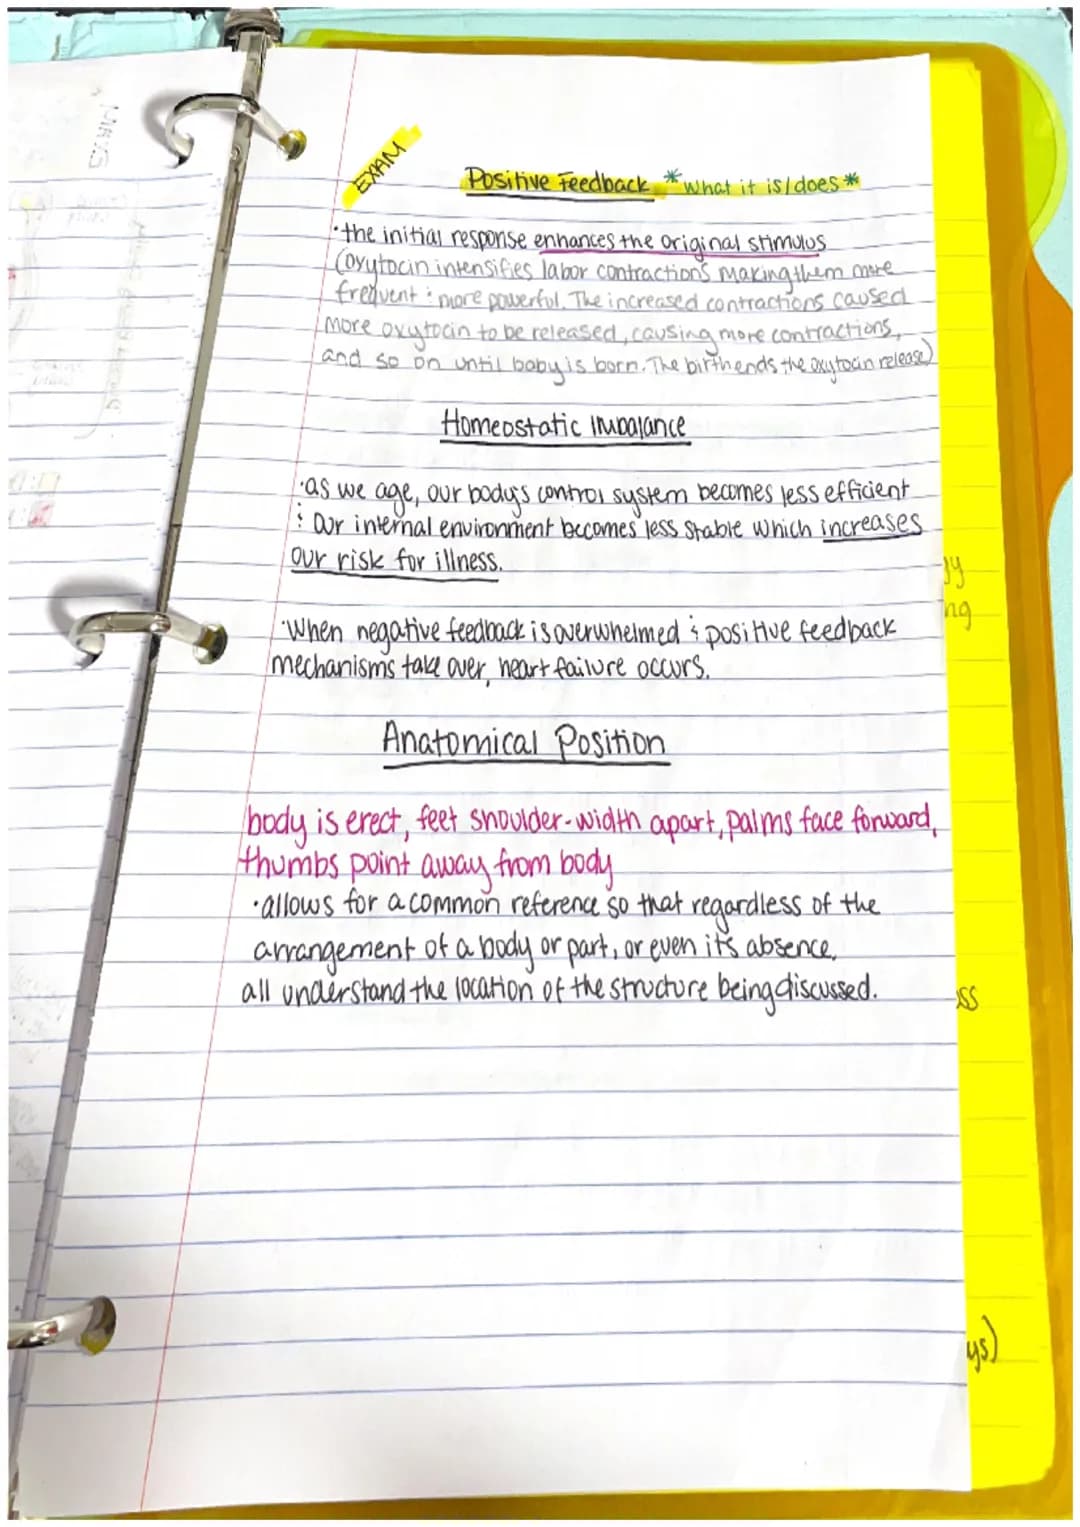 EXAM
Positive Feedback *what it is/does*
·the initial response enhances the original stimulus
(oxytocin intensifies labor contractions making them more
frequent & more powerful. The increased contractions caused
more oxytocin to be released, causing more contractions,
and so on until baby is born. The birth ends the oxytocin release)
Homeostatic Imbalance
·as we age, our body's control system becomes less efficient
& Our internal environment becomes less stable which increases
our risk for illness.
·When negative feedback is overwhelmed & positive feedback
mechanisms take over, heart failure occurs.
Anatomical Position
body is erect, feet shoulder-width apart, palms face forward,
thumbs point away from body
·allows for a common reference so that regardless of the
arrangement of a body or part, or even it's absence,
all understand the location of the structure being discussed.
ng
ss
ys)